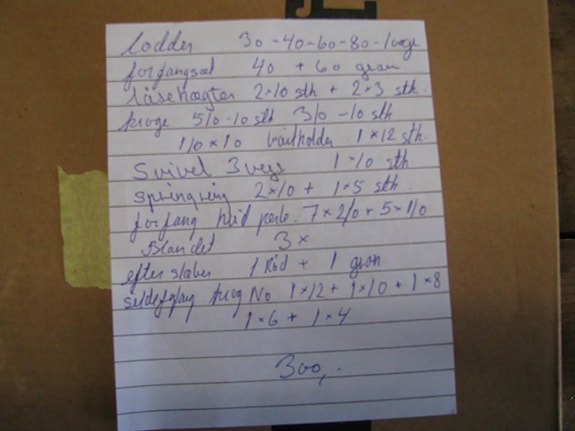 lodder 30-40-60-80-1
forfangsæt 40 + 60 gram.
låsehægter 2×10 stk + 2×3 stk.
kroge 5/0-10 stk 3/0-10 stk
1/0×10 baitholder 1×12 stk.
Swivel 3 vejs 1-10 stk
springring 2×10 + 1×5 stk
forfang hvid perle. 7×2/0 + 5×1/0
Blandet 3×
efter slæber 1 Rød + 1 grøn
krog No 1×12 + 1×10 + 1×8
1×6 + 1×4
300,.